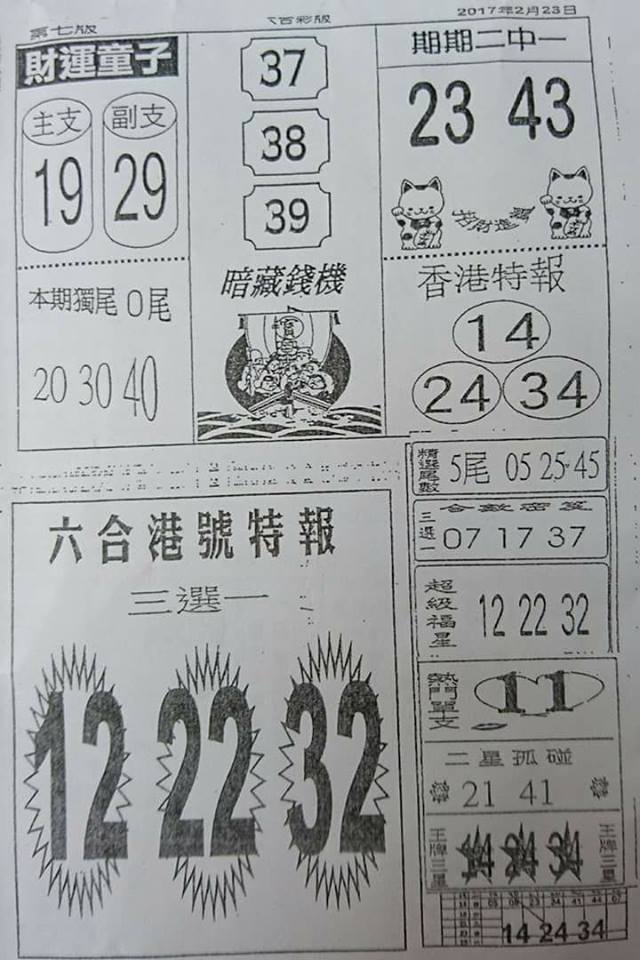 第七版
六合彩版
2017年2月23日
財運童子
主支
副支
19
29
37
38
39
期期二中一
23 43
本期獨尾 0尾
20 30 40
暗藏錢機
香港特報
14
24 34
精選尾數
5尾 05 25 45
三選一
07 17 37
超級福星
12 22 32
六合港號特報
三選一
12 22 32
熱門單支
11
二星孤碰
21 41
王牌三星
14 24 34
王牌三星
14 24 34